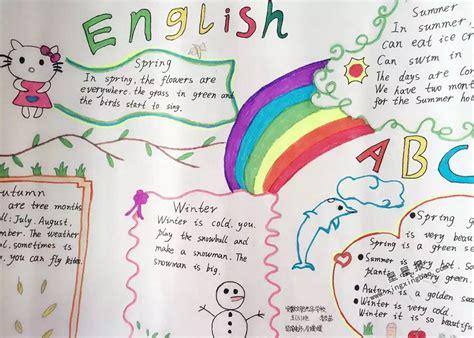 English
Spring
In spring, the flowers are
everywhere. the grass in green and
the birds start to sing.
Summer
In summer,
can eat ice cr
Can swim in
The days are Lon
We have two mont
for the Summer ho
ABC
Autumn
are tree months
: July. August,
mber. The weather
ool, sometimes is
n, you can fly kites.
Winter
Winter is cold. you
play the snowball and
make a snowman. The
snowman is big.
Spring
Spring is very beau
is a green se
Summer is very hot. S
plants
Autumn is a golden sea
Winter is very
Winter it is so beautif